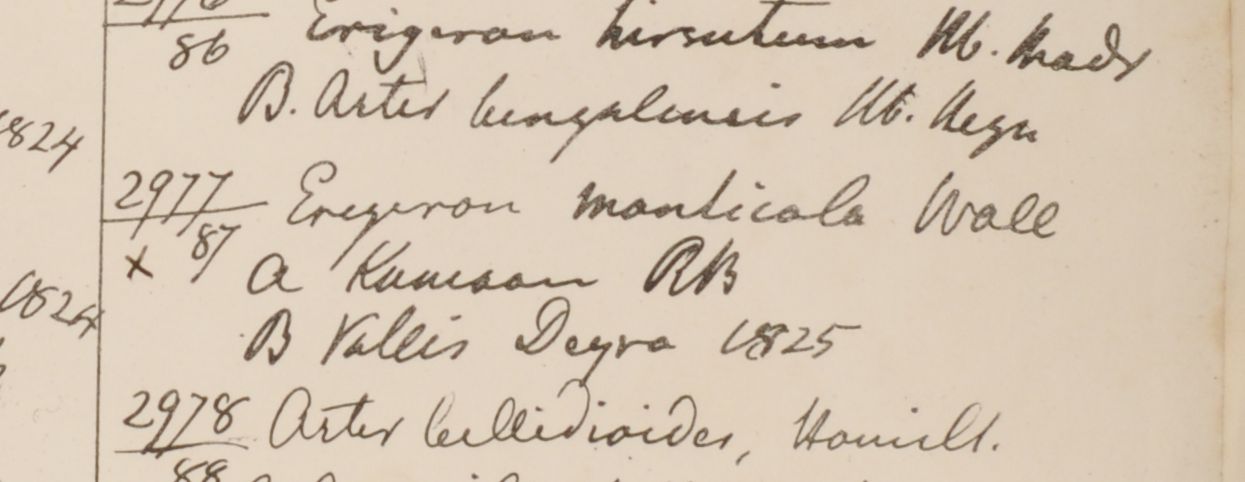 2976
86 Erigeron hirsutum Hb. Madr
B. Aster bengalensis Hb.
1824
2977 Erigeron monticola Wall
87
x a Kamaon RB
1824
B Vallis Deyra 1825
2978 Aster bellidioides, Hamilt.
88